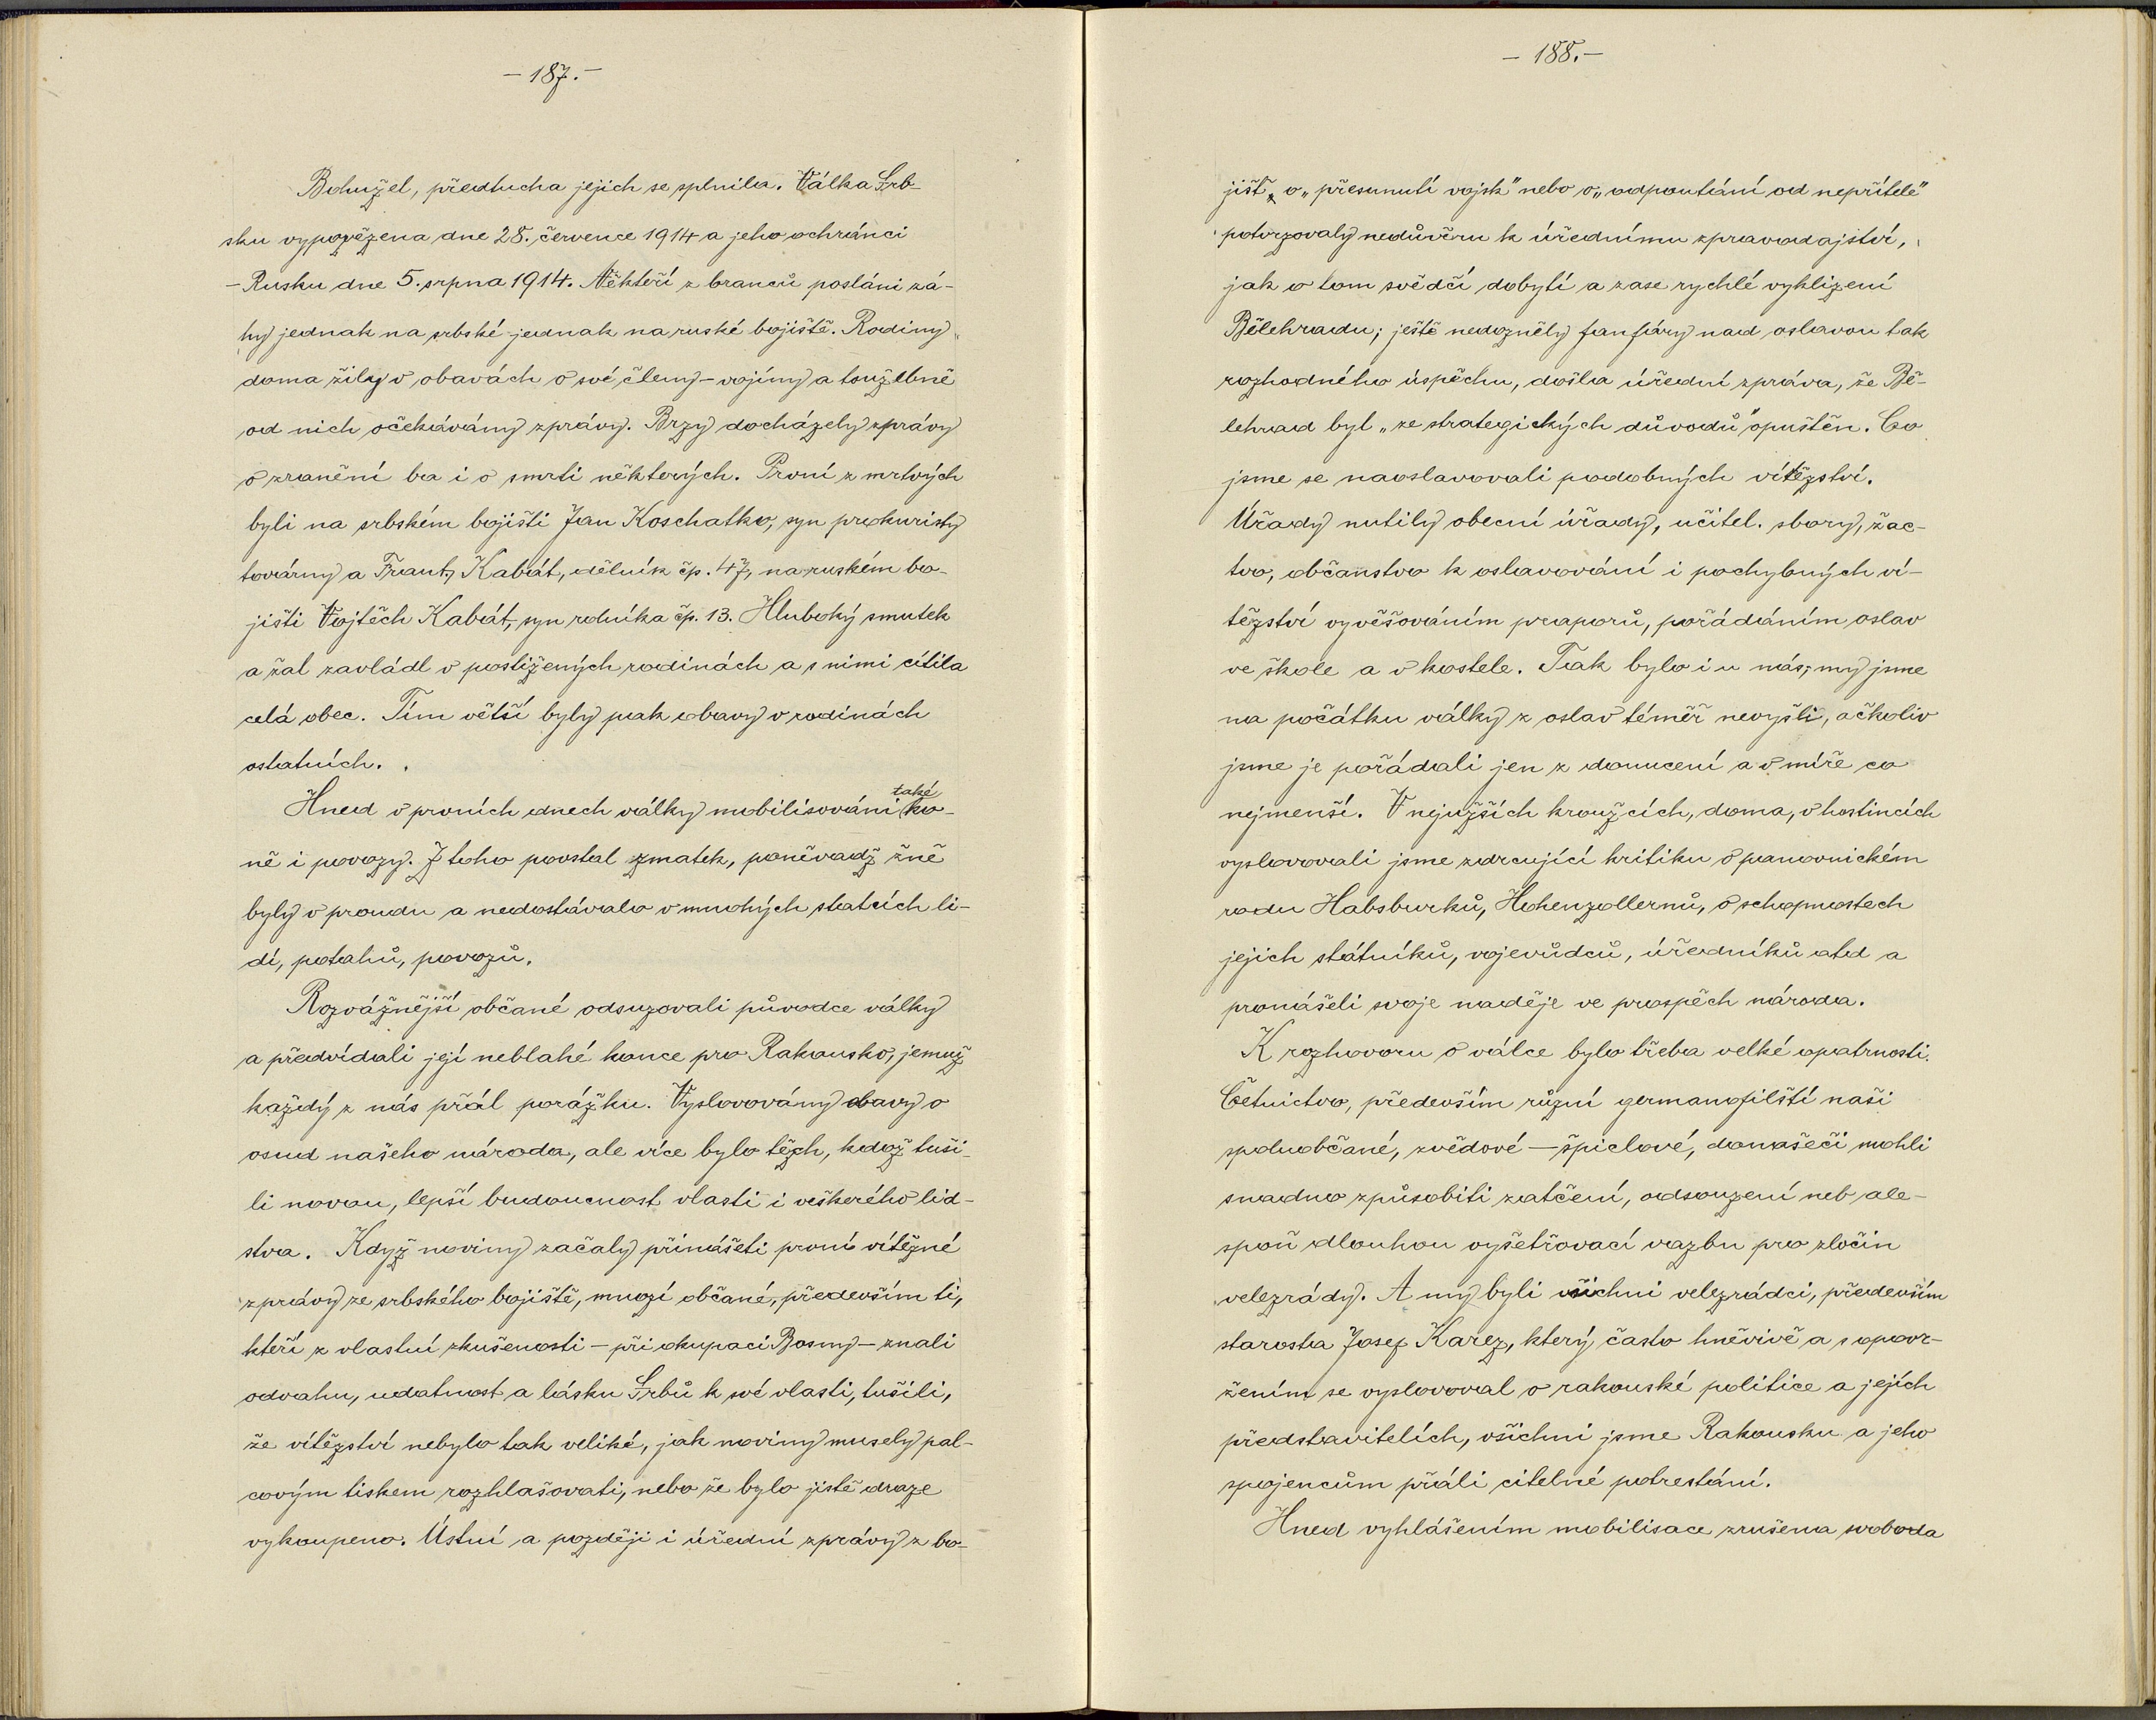 - 187. -
Bohužel, předtucha jejich se splnila. Válka Srb-
sku vypovězena dne 28. července 1914 a jeho ochránci
- Rusku dne 5. srpna 1914. Někteří z branců posláni zá-
hy jednak na srbské jednak na ruské bojiště. Rodiny
doma žily v obavách o své členy - vojíny a toužebně
od nich očekávány zprávy. Brzy docházely zprávy
o zranění ba i o smrti některých. První z mrtvých
byli na srbském bojišti Jan Koschatko, syn prokuristy
továrny a Frant. Kabát, dělník čp. 47, na ruském bo-
jišti Vojtěch Kabát, syn rolníka čp. 13. Hluboký smutek
a žal zavládl v postižených rodinách a s nimi cítila
celá obec. Tím větší byly pak obavy v rodinách
ostatních.
Hned v prvních dnech války mobilisováni také ko-
ně i povozy. Z toho povstal zmatek, poněvadž žně
byly v proudu a nedostávalo v mnohých statcích li-
dí, potahů, povozů.
Rozvážnější občané odsuzovali původce války
a předvídali její neblahé konce pro Rakousko, jemuž
každý z nás přál porážku. Vyslovovány obavy o
osud našeho národa, ale více bylo těch, kdož tuši-
li novou, lepší budoucnost vlasti i veškerého lid-
stva. Když noviny začaly přinášeti první vítězné
zprávy ze srbského bojiště, mnozí občané, především ti,
kteří z vlastní zkušenosti - při okupaci Bosny - znali
odvahu, udatnost a lásku Srbů k své vlasti, tušili,
že vítězství nebylo tak veliké, jak noviny musely pal-
covým tiskem rozhlašovati, nebo že bylo jistě draze
vykoupeno. Ústní a později i úřední zprávy z bo-
- 188. -
jišť, o „přesunutí vojsk" nebo o „odpoutání od nepřítele"
potvrzovaly nedůvěru k úřednímu zpravodajství,
jak o tom svědčí dobytí a zase rychlé vyklizení
Bělehradu; ještě nedozněly fanfáry nad oslavou tak
rozhodného úspěchu, došla úřední zpráva, že Bě-
lehrad byl „ze strategických důvodů" opuštěn. Co
jsme se naoslavovali podobných vítězství.
Úřady nutily obecní úřady, učitel. sbory, žac-
tvo, občanstvo k oslavování i pochybných ví-
tězství vyvěšováním praporů, pořádáním oslav
ve škole a v kostele. Tak bylo i u nás; my jsme
na počátku války z oslav téměř nevyšli, ačkoliv
jsme je pořádali jen z donucení a v míře co
nejmenší. V nejužších kroužcích, doma, v hostincích
vyslovovali jsme zdrcující kritiku o panovnickém
rodu Habsburků, Hohenzollernů, o schopnostech
jejich státníků, vojevůdců, úředníků atd a
pronášeli svoje naděje ve prospěch národa.
K rozhovoru o válce bylo třeba velké opatrnosti.
Četnictvo, především různí germanofilští naši
spoluobčané, zvědové - špiclové, donašeči mohli
snadno způsobiti zatčení, odsouzení neb ale-
spoň dlouhou vyšetřovací vazbu pro zločin
velezrády. A my byli všichni velezrádci, především
starosta Josef Karez, který často hněvivě a s opovr-
žením se vyslovoval o rakouské politice a jejích
představitelích, všichni jsme Rakousku a jeho
spojencům přáli citelné potrestání.
Hned vyhlášením mobilisace zrušena svoboda